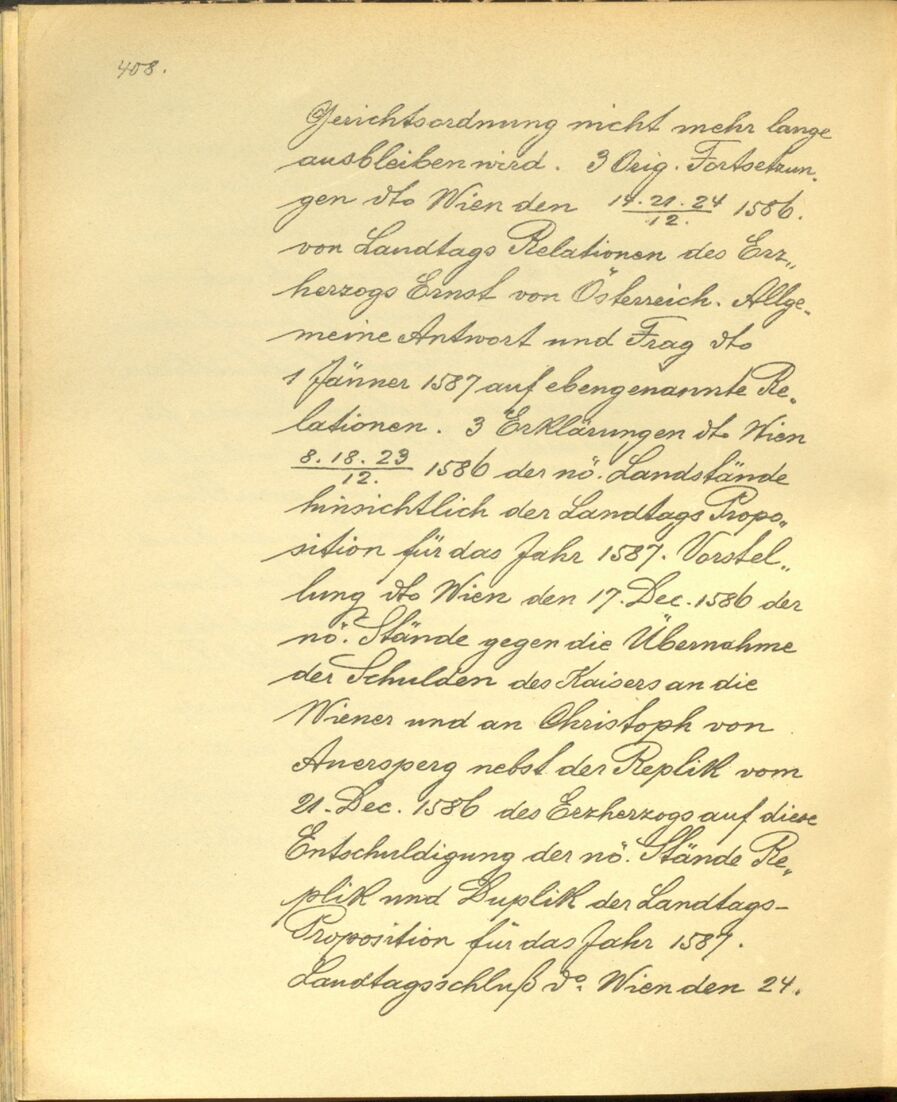 408.
Gerichtsordnung nicht mehr lange
ausbleiben wird. 3 Orig. Fortsetzun„
gen dto Wien den 14.21.24/12. 1586.
von Landtags Relationen des Erz„
herzogs Ernst von Österreich. Allge„
meine Antwort und Frag dto
1 Jänner 1587 auf ebengenannte Re„
lationen. 3 Erklärungen dto Wien
8.18.23/12. 1586 der nö. Landstände
hinsichtlich der Landtags Propo„
sition für das Jahr 1587. Vorstel„
lung dto Wien den 17. Dec. 1586 der
nö. Stände gegen die Übernahme
der Schulden des Kaisers an die
Wiener und an Christoph von
Auersperg nebst der Replik vom
21. Dec. 1586 des Erzherzogs auf diese
Entschuldigung der nö. Stände Re„
plik und Duplik der Landtags-
Proposition für das Jahr 1587.
Landtagsschluß do. Wien den 24.